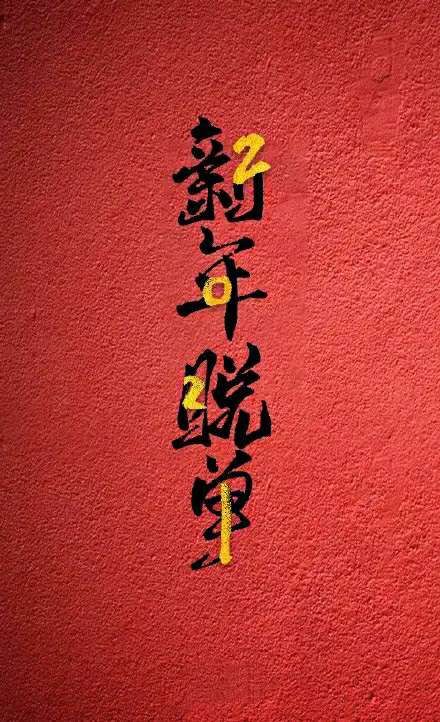 新年脱单
2021